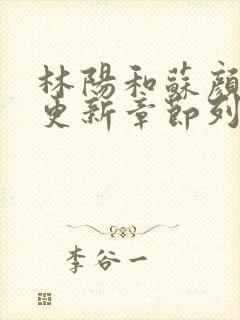 林陽和蘇顏
史新章節列
李谷一